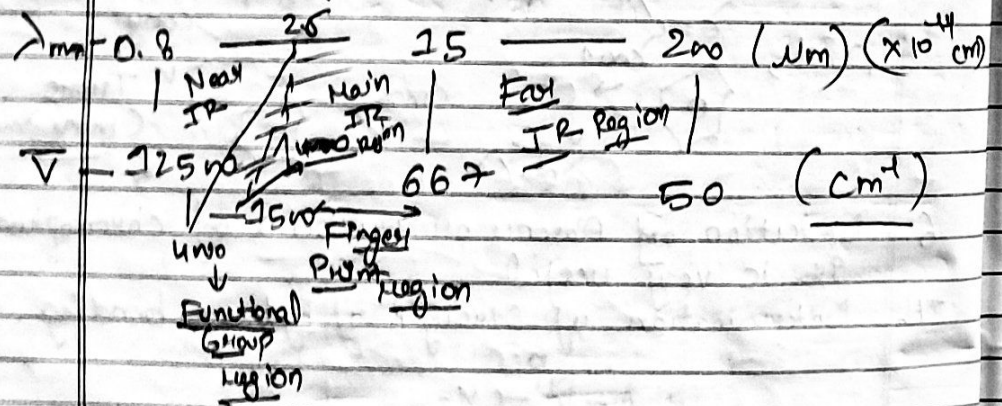 λmm 0.8 2.5 15 200 (μm) (×10⁻⁴ cm)
Near Main Far
IR IR IR Region
ν̄ 12500 667 50 (cm⁻¹)
1500 Finger
4000 Print region
Functional
Group
region